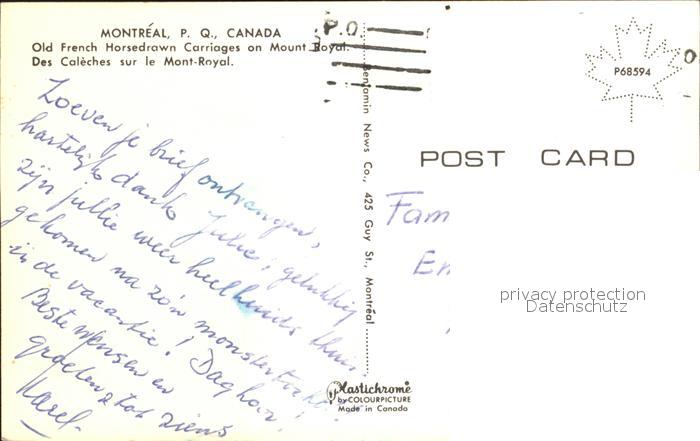 MONTRÉAL, P. Q., CANADA
Old French Horsedrawn Carriages on Mount Royal.
Des Calèches sur le Mont-Royal.
P.O.
P68594
POST CARD
Zoeven je brief ontvangen,
hartelijk dank Julie; gelukkig
zijn jullie weer heelhuids thuis
gekomen na zo'n monstertocht
in de vacantie! Dag hoor!
Beste wensen en
groeten & tot ziens
Karel.
Benjamin News Co., 425 Guy St., Montréal
Fam
privacy protection
Datenschutz
Plastichrome
by COLOURPICTURE
Made in Canada